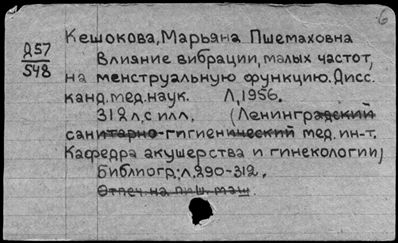 6
Д57
548
Кешокова, Марьяна Пшемаховна
Влияние вибрации, малых частот,
на менструальную функцию. Дисс.
канд. мед. наук. Л, 1956.
312 л, с илл. (Ленинградский
санитарно-гигиенический мед. ин-т.
Кафедра акушерства и гинекологии)
Библиогр: л. 290-312.
Отпеч. на пиш. маш.